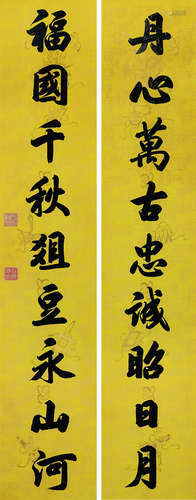 丹心萬古忠誠昭日月
福國千秋俎豆永山河